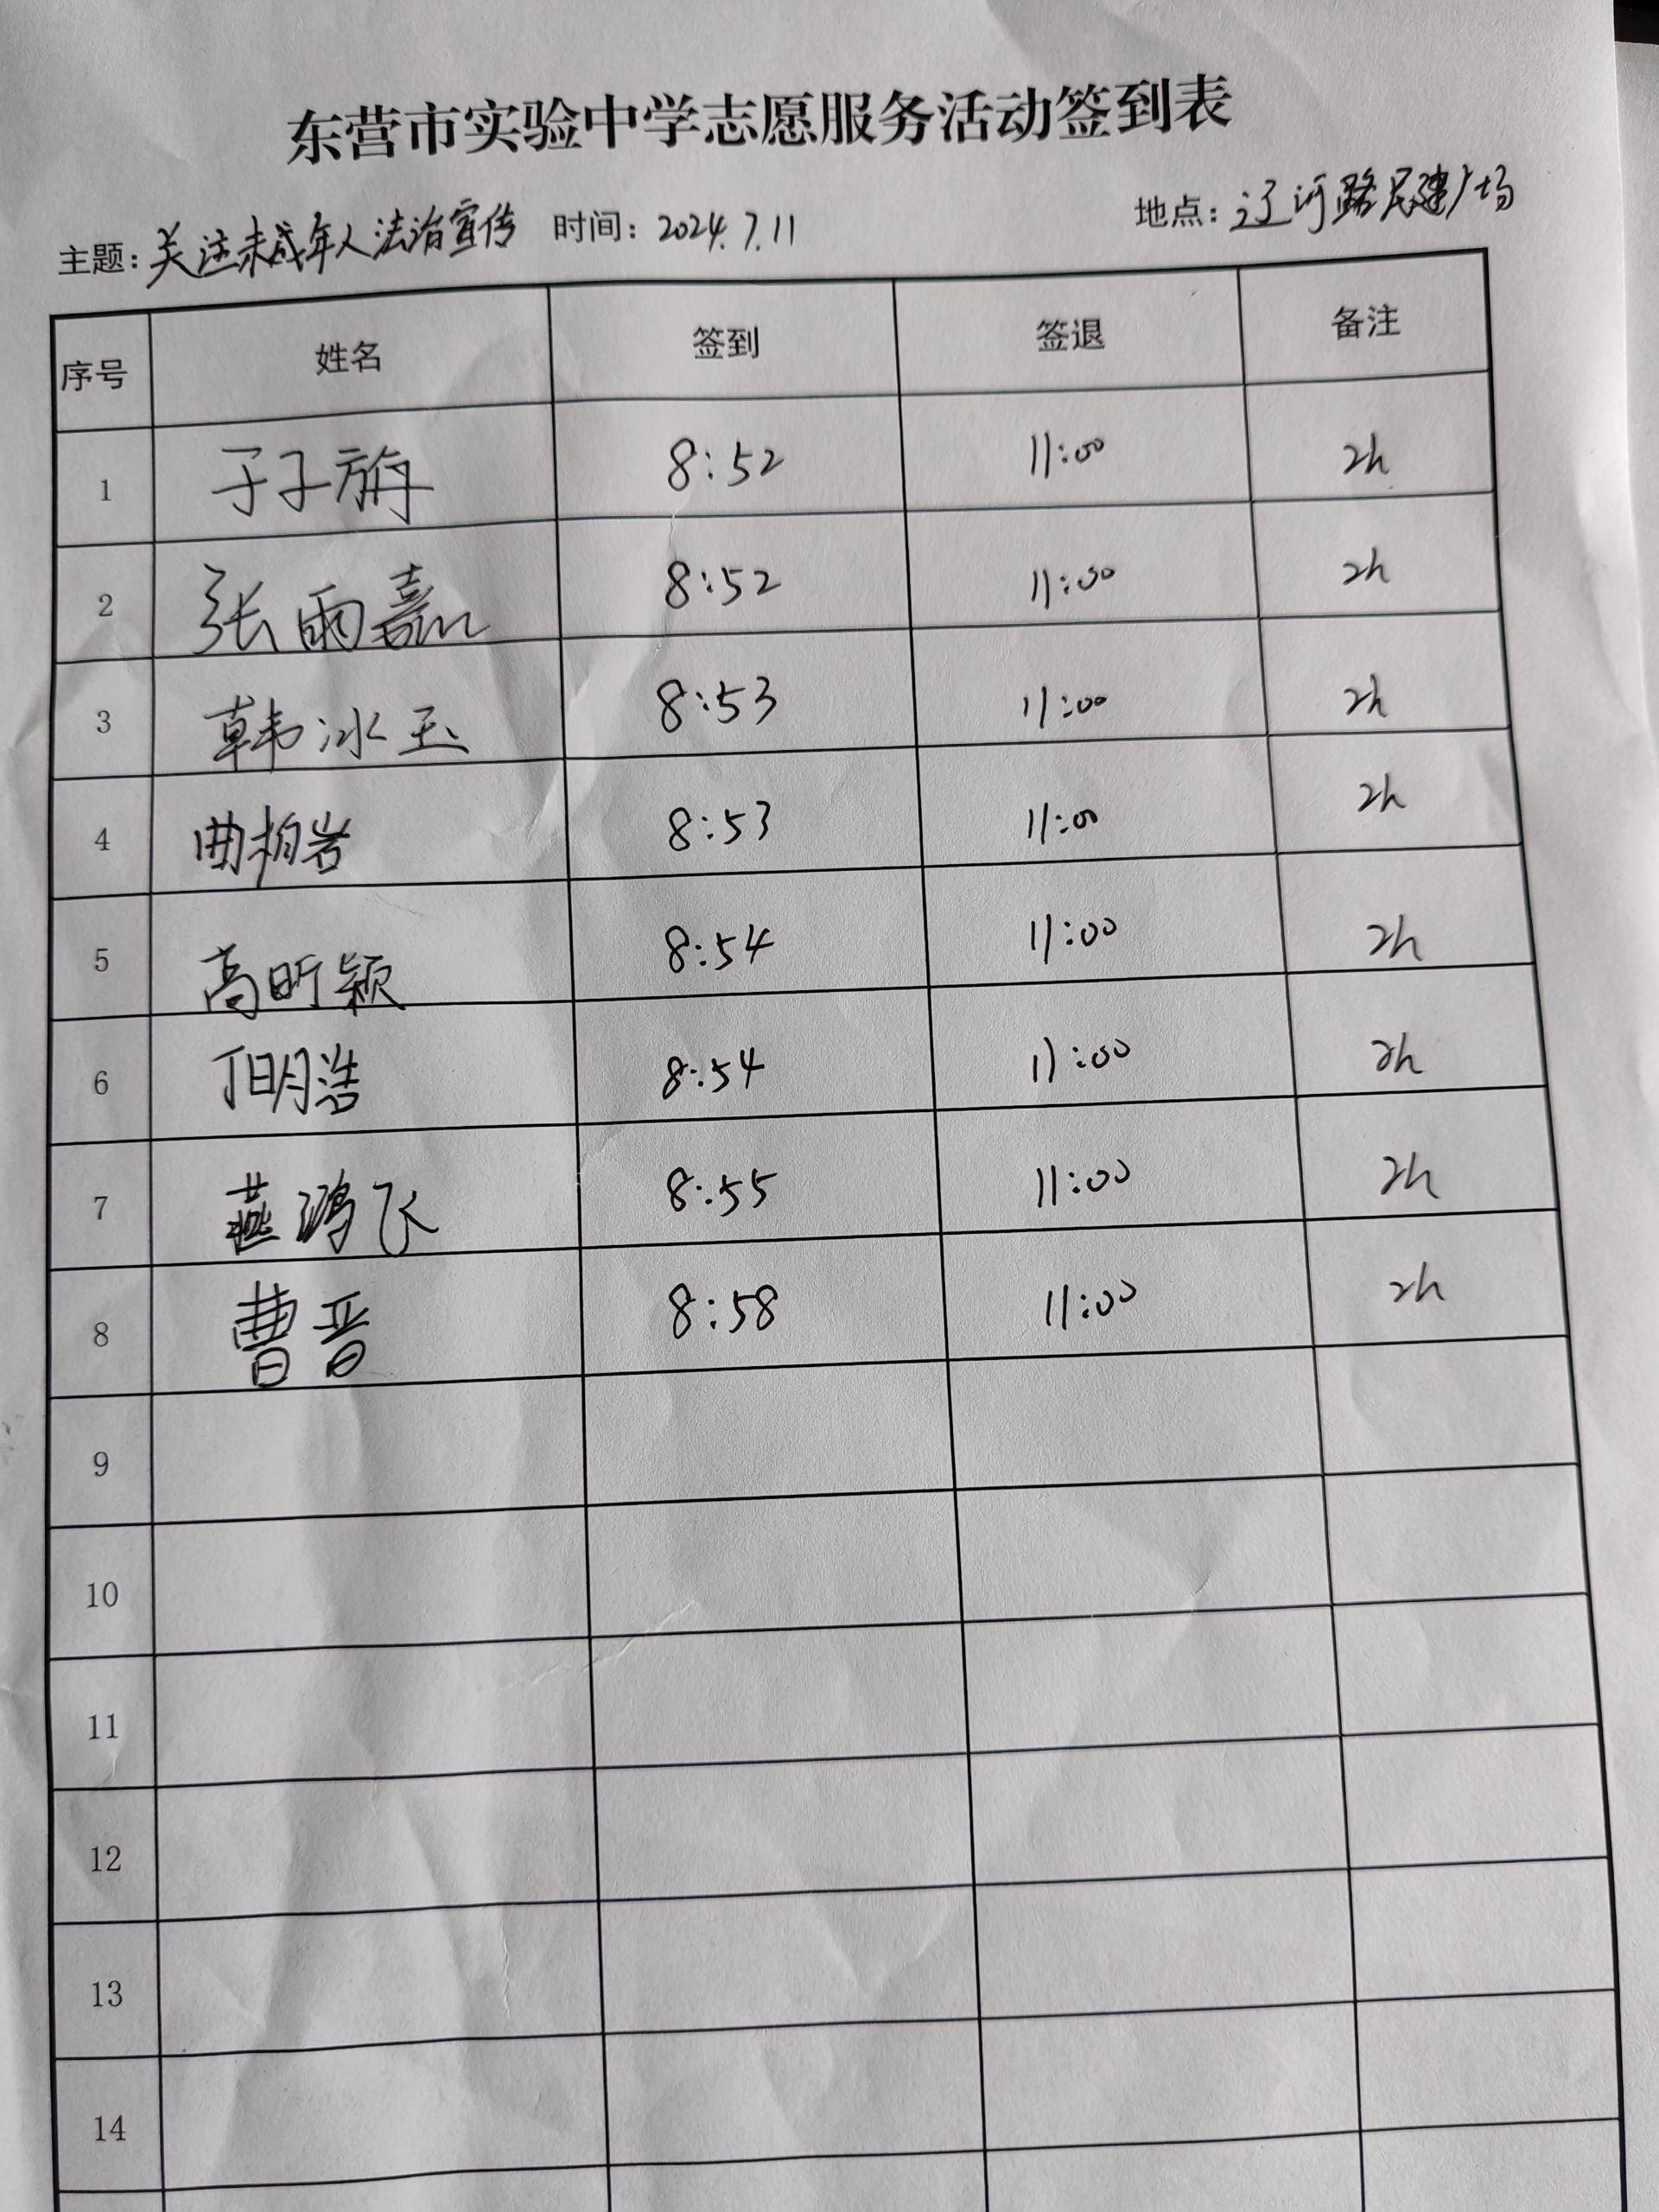 东营市实验中学志愿服务活动签到表
主题：关注未成年人法治宣传 时间：2024.7.11 地点：辽河路民建广场
序号 姓名 签到 签退 备注
1 于子旃 8:52 11:00 2h
2 张雨嘉 8:52 11:00 2h
3 韩冰玉 8:53 11:00 2h
4 曲柏岩 8:53 11:00 2h
5 高昕颖 8:54 11:00 2h
6 丁明浩 8:54 11:00 2h
7 燕鸿飞 8:55 11:00 2h
8 曹晋 8:58 11:00 2h
9
10
11
12
13
14